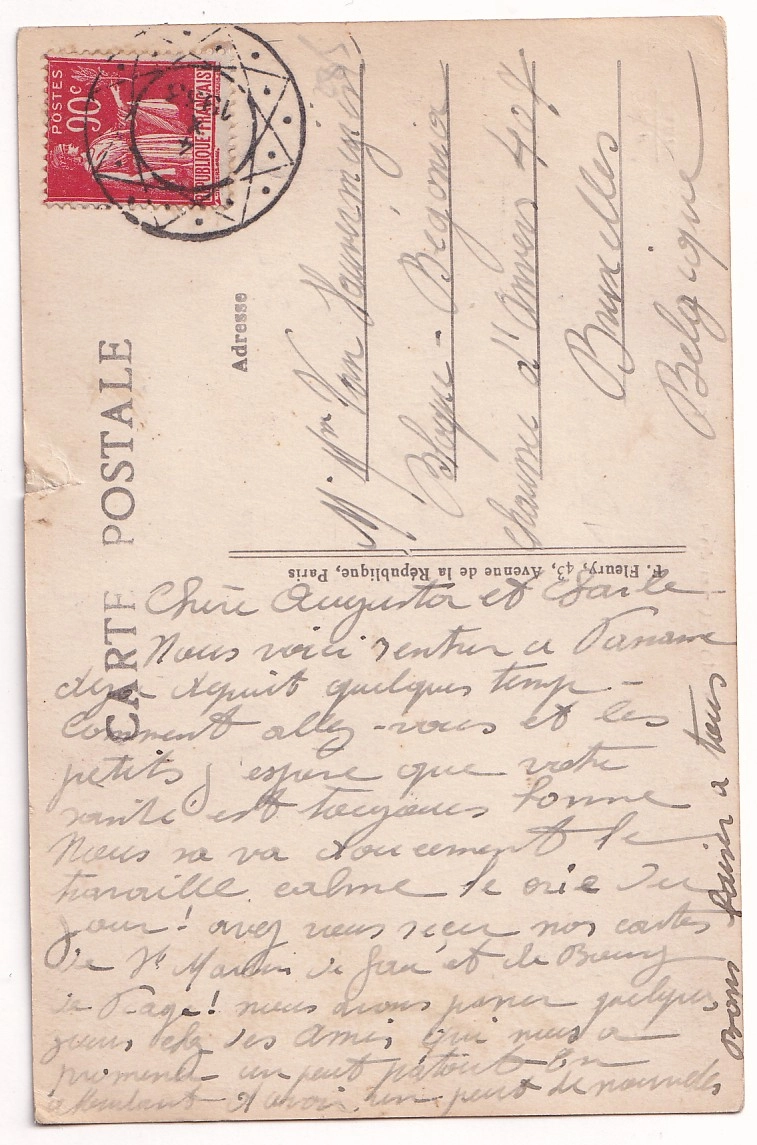 POSTES
90c
REPUBLIQUE FRANÇAISE
CARTE POSTALE
Adresse
M. Mme Van
Bloque - Begonia
Chaussée d'Anvers 404
Bruxelles
Belgique
F. Fleury, 43, Avenue de la République, Paris
Chère Augusta et Charle -
Nous voici rentrer a Paname
deja depuit quelques temp -
Comment allez-vous et les
petits j'espère que votre
santé est toujours bonne
Nous sa va doucement le
travaille calme le crie du
jour! avez vous reçu nos cartes
de St Martin de et de Bourg
de Page! nous avons passer quelques
jours chez des Amis qui nous a
promener un peut patout - En
attendant d'avoir un peut de nouvelles
Bons baiser a tous